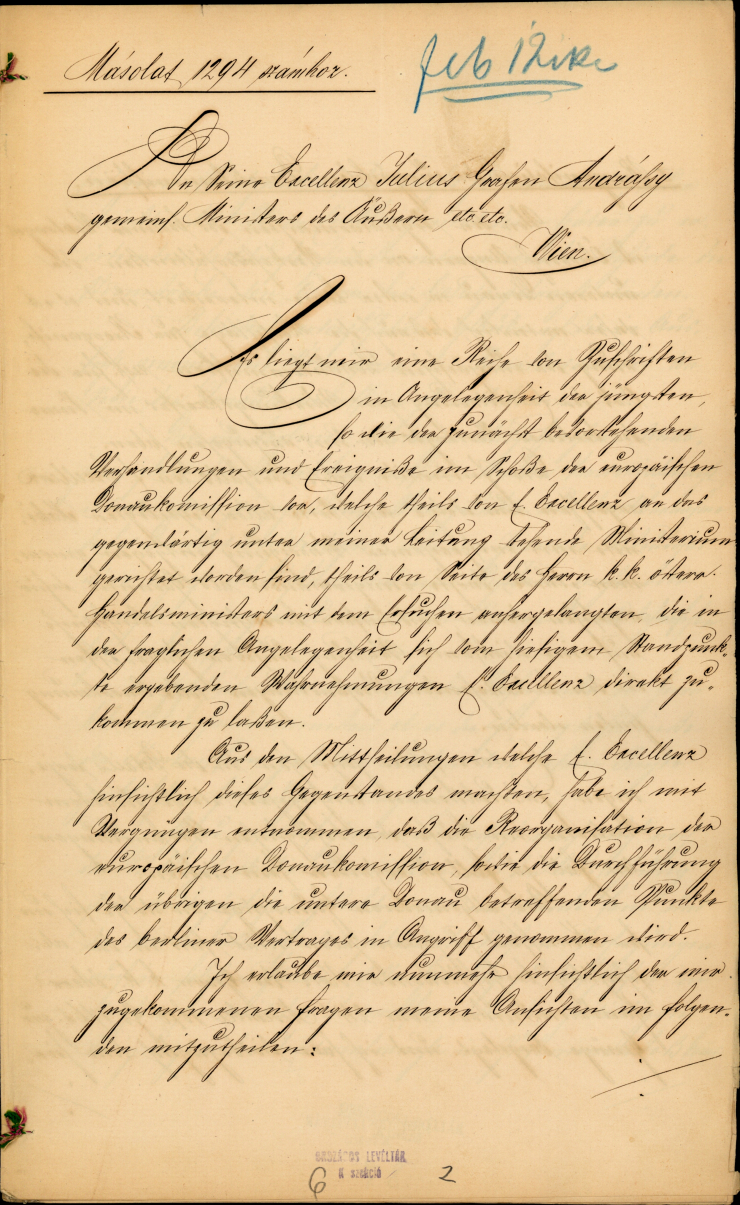 Másolat 1294 számhoz.
feb 12ike
An Seine Excellenz Julius Grafen Andrássy
gemeins. Ministers des Äußern etc. etc.
Wien.
Es liegt mir eine Reihe von Zuschriften
in Angelegenheit der jüngsten,
so wie der zunächst bevorstehenden
Verhandlungen und Ereigniße im Schoße der europäischen
Donaukomission vor, welche theils von E. Excellenz an das
gegenwärtig unter meiner Leitung stehende Ministerium
gerichtet worden sind, theils von Seite des Herrn k. k. österr.
Handelsministers mit dem Ersuchen anhergelangten, die in
der fraglichen Angelegenheit sich vom hiesigem Standpunk-
te ergebenden Wahrnehmungen E. Excellenz direkt zu-
kommen zu laßen.
Aus den Mittheilungen welche E. Excellenz
hinsichtlich dieses Gegenstandes machten, habe ich mit
Vergnügen entnommen, daß die Reorganisation der
europäischen Donaukomission, sowie die Durchführung
der übrigen die untere Donau betreffenden Punkte
des berliner Vertrages in Angriff genommen wird.
Ich erlaube mir nunmehr hinsichtlich der mir
zugekommenen Fragen meine Ansichten im folgen-
den mitzutheilen:
ORSZÁGOS LEVÉLTÁR
K szekció
6 2